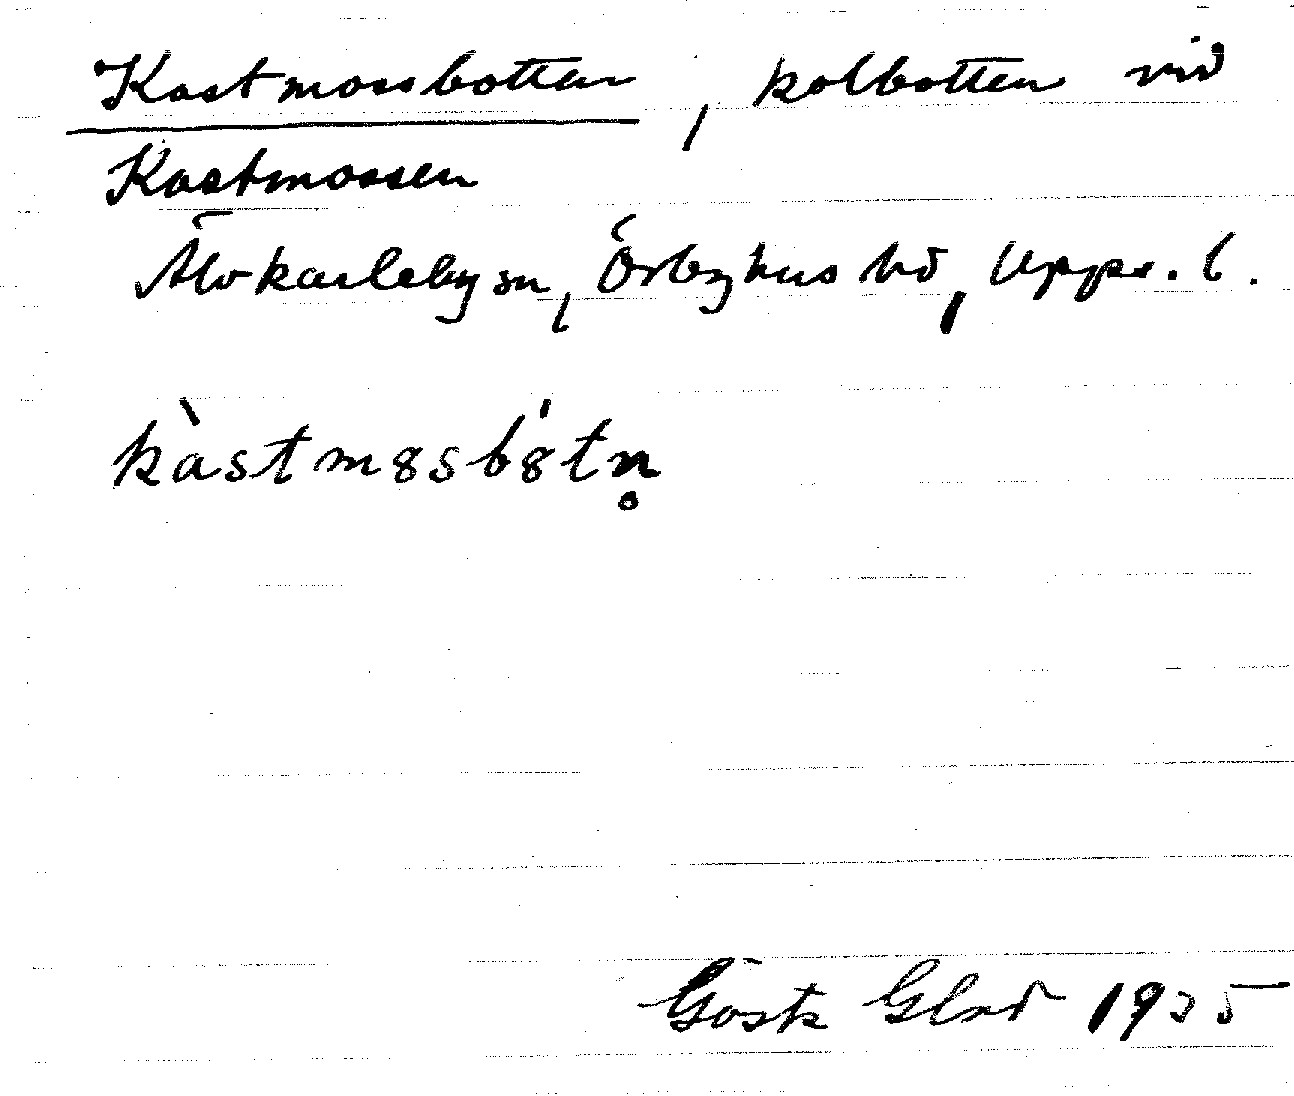 Kastmossbotten, kolbotten vid
Kastmossen
Älvkarleby sn, Örbyhus hd, Upps. l.
kàstm8sb8̍tn̥
Gösta Glad 1935